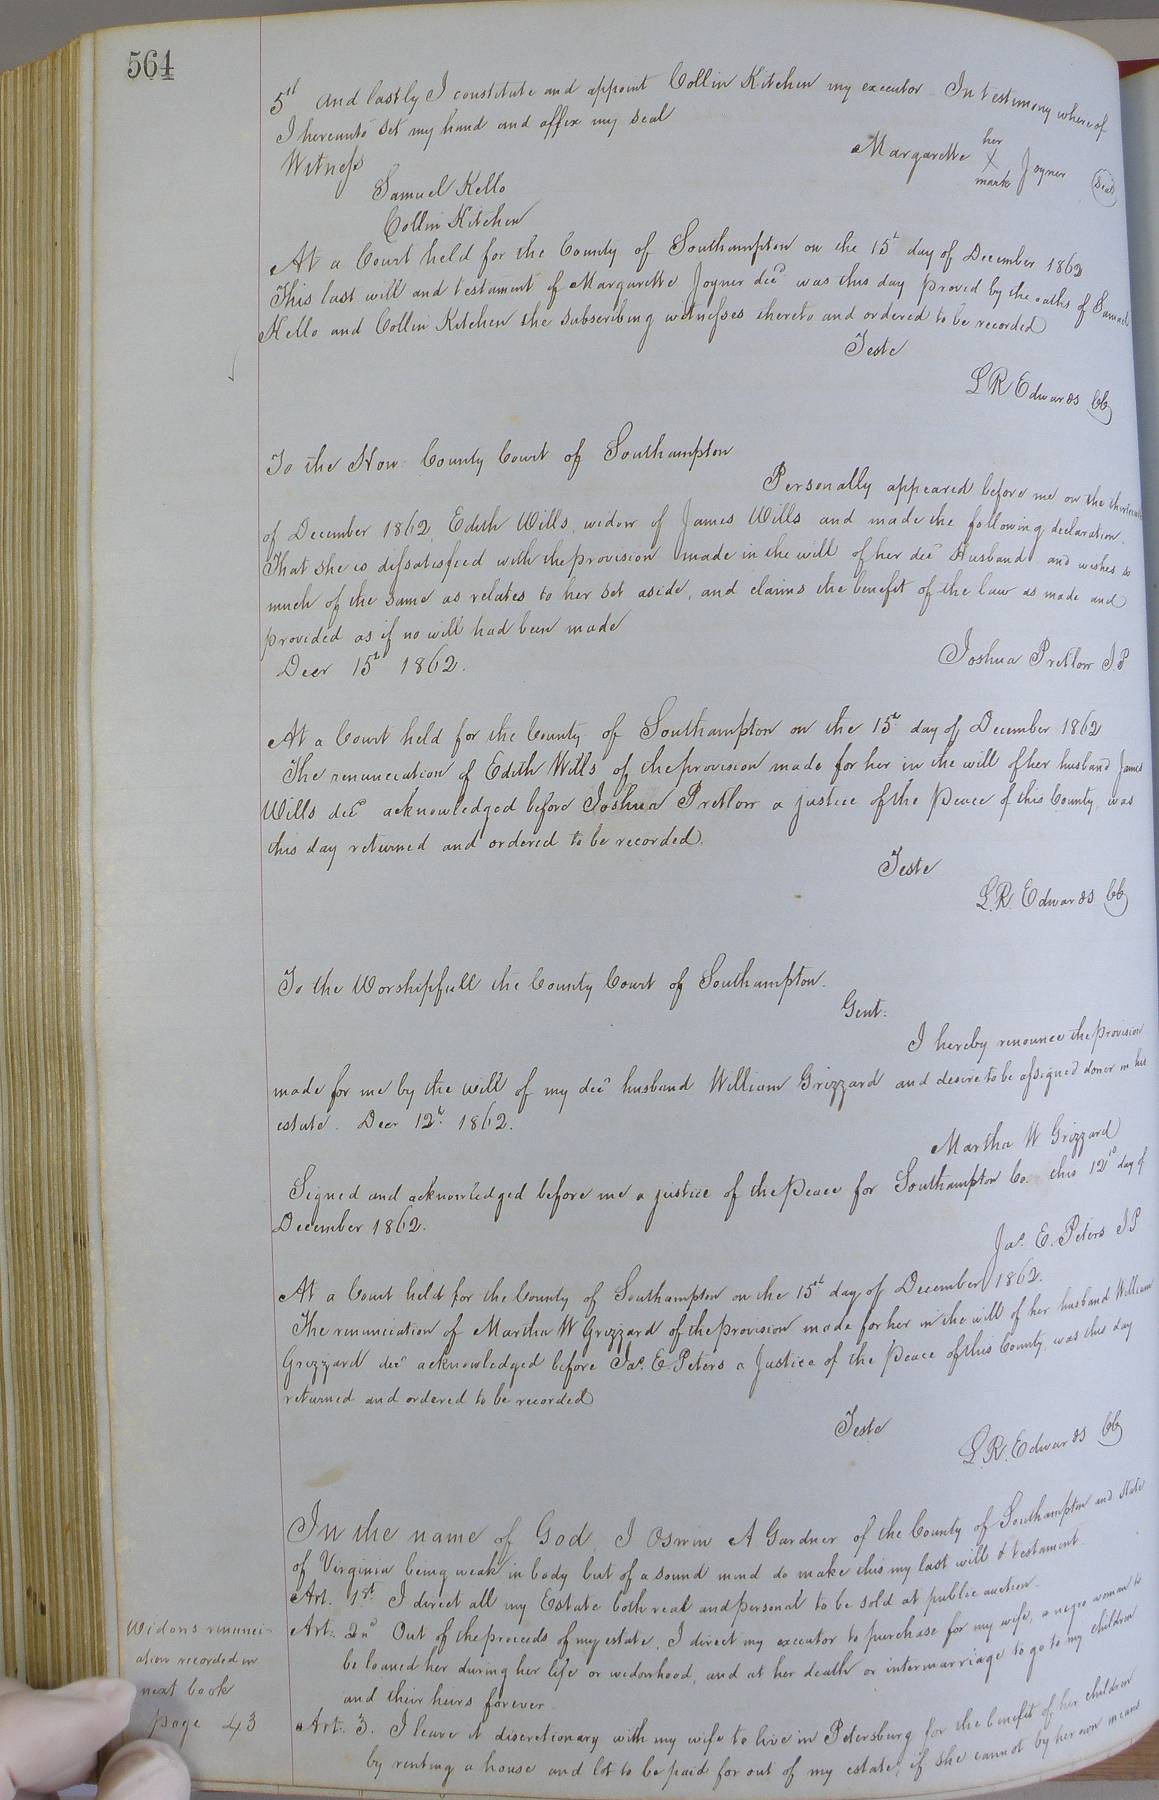 564
5th And lastly I constitute and appoint Collin Kitchen my executor In testimony whereof
I hereunto set my hand and affix my seal
Witness
Margarette her X mark Joyner (Seal)
Samuel Kello
Collin Kitchen
At a Court held for the County of Southampton on the 15th day of December 1862
This last will and testament of Margarette Joyner decd was this day proved by the oaths of Samuel
Kello and Collin Kitchen the subscribing witnesses thereto and ordered to be recorded
Teste
L R Edwards CC
To the Hon: County Court of Southampton
Personally appeared before me on the thirteenth
of December 1862, Edith Wills, widow of James Wills and made the following declaration.
That she is dissatisfied with the provision made in the will of her decd Husband and wishes so
much of the same as relates to her set aside, and claims the benefit of the law as made and
provided as if no will had been made
Decr 15th 1862.
Joshua Pretlow J.P
At a Court held for the County of Southampton on the 15th day of December 1862
The renunciation of Edith Wills of the provision made for her in the will of her husband James
Wills decd acknowledged before Joshua Pretlow a justice of the Peace of this County, was
this day returned and ordered to be recorded.
Teste
L.R. Edwards CC
To the Worshipfull the County Court of Southampton.
Gent:
I hereby renounce the provision
made for me by the will of my decd husband William Grizzard and desire to be assigned dower in his
estate. Decr 12th 1862.
Martha W Grizzard
Signed and acknowledged before me a justice of the Peace for Southampton Co. this 12th day of
December 1862.
Jas. E. Peters J.P
At a Court held for the County of Southampton on the 15th day of December 1862.
The renunciation of Martha W Grizzard of the provision made for her in the will of her husband William
Grizzard decd acknowledged before Jas. E Peters a Justice of the Peace of this County, was this day
returned and ordered to be recorded
Teste
L.R. Edwards CC
In the name of God, I Oswin A. Gardner of the County of Southampton and State
of Virginia being weak in body but of a sound mind do make this my last will & testament.
Art. 1st. I direct all my Estate both real and personal to be sold at public auction.
Art. 2nd Out of the proceeds of my estate, I direct my executor to purchase for my wife, a negro woman to
be loaned her during her life or widowhood, and at her death or intermarriage to go to my children
and their heirs forever
Art. 3. I leave it discretionary with my wife to live in Petersburg for the benefit of her children
by renting a house and lot to be paid for out of my estate, if she cannot by her own means
Widows renunci-
ation recorded in
next book
page 43